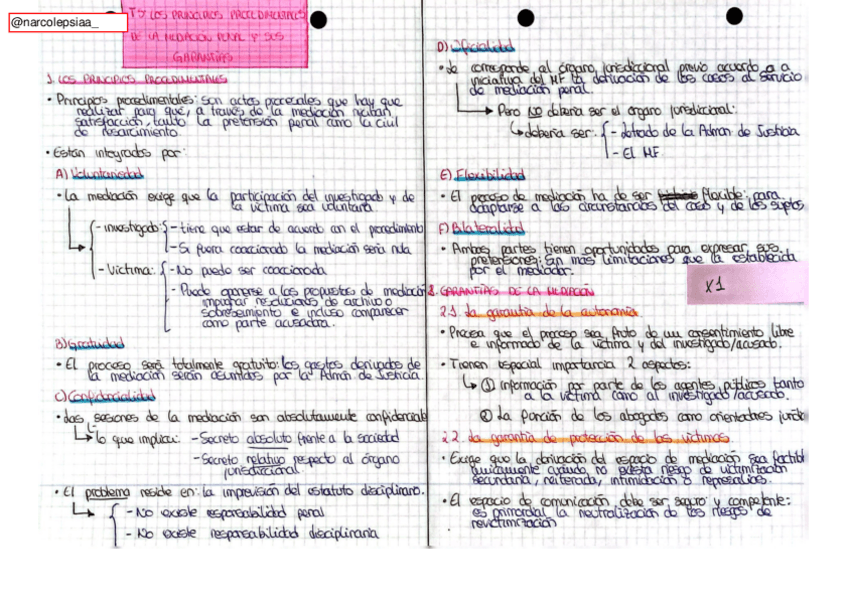 @narcolepsiaa_
T5 LOS PRINCIPIOS PROCEDIMENTALES
DE LA MEDIACIÓN PENAL Y SUS
GARANTÍAS
1. LOS PRINCIPIOS PROCEDIMENTALES
• Principios procedimentales: son actos procesales que hay que
realizar para que, a través de la mediación reciban
satisfacción, tanto la pretensión penal como la civil
de resarcimiento.
• Están integrados por:
A) Voluntariedad
• La mediación exige que la participación del investigado y de
la víctima sea voluntaria
- investigado: - tiene que estar de acuerdo con el procedimiento
- Si fuera coaccionado la mediación sería nula
- Víctima: - No puede ser coaccionada
- Puede oponerse a las propuestas de mediación
impugnar resoluciones de archivo o
sobreseimiento e incluso comparecer
como parte acusadora.
B) Gratuidad
• El proceso será totalmente gratuito: los gastos derivados de
la mediación serán asumidos por la Admón de Justicia.
C) Confidencialidad
• Las sesiones de la mediación son absolutamente confidencial
lo que implica: - Secreto absoluto frente a la sociedad
- Secreto relativo respecto al órgano
jurisdiccional
• El problema reside en: la imprevisión del estatuto disciplinario.
- No existe responsabilidad penal
- No existe responsabilidad disciplinaria
D) Oficialidad
• Le corresponde al órgano jurisdiccional previo acuerdo o a
iniciativa del MF la derivación de los casos al servicio
de mediación penal.
Pero NO debería ser el órgano jurisdiccional:
debería ser: - letrado de la Admón de Justicia
- El MF
E) Flexibilidad
• El proceso de mediación ha de ser flexible: para
adaptarse a las circunstancias del caso y de los sujetos
F) Bilateralidad
• Ambas partes tienen oportunidades para expresar sus
pretensiones: sin más limitaciones que la establecida
por el mediador.
2. GARANTÍAS DE LA MEDIACIÓN
X1
2.1. La garantía de la autonomía
• Precisa que el proceso sea fruto de un consentimiento libre
e informado de la víctima y del investigado/acusado.
• Tienen especial importancia 2 aspectos:
① información por parte de los agentes públicos tanto
a la víctima como al investigado/acusado.
② La función de los abogados como orientadores
2.2. La garantía de protección de las víctimas
• Exige que la derivación del espacio de mediación sea factible
únicamente cuando no exista riesgo de victimización
secundaria, reiterada, intimidación o represalias.
• El espacio de comunicación debe ser seguro y competente:
es primordial la neutralización de los riesgos de
revictimización